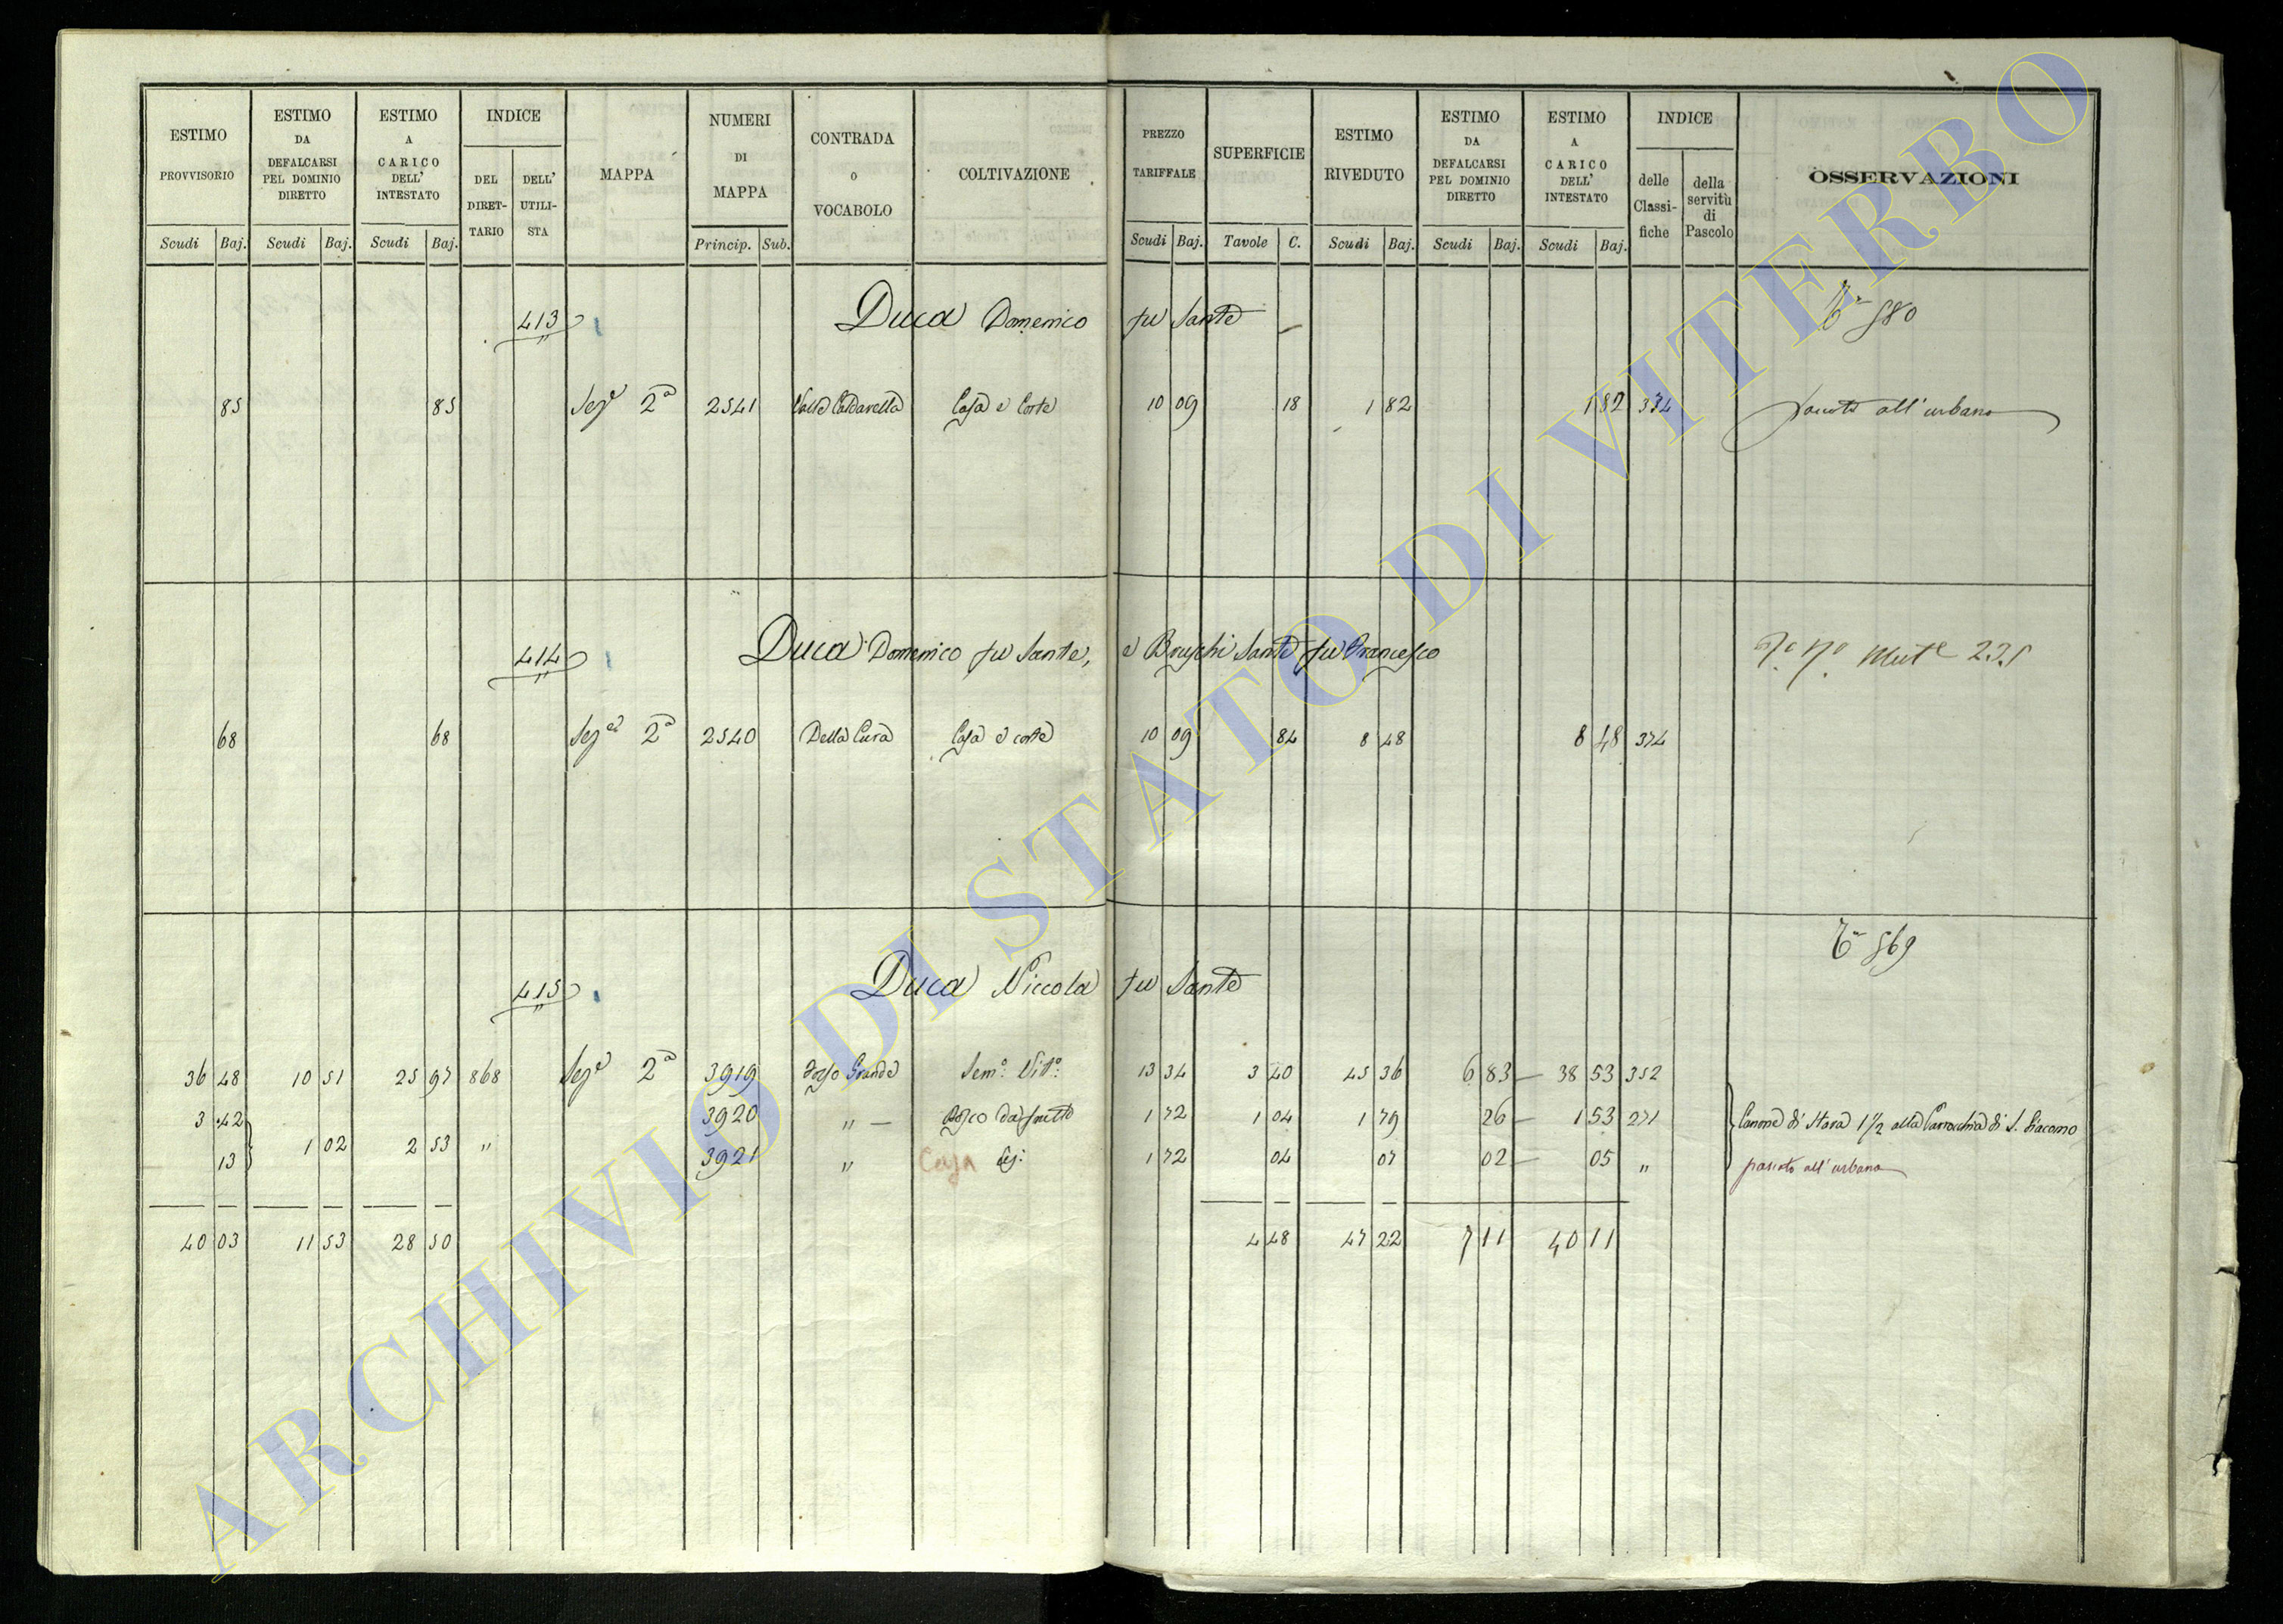 ESTIMO PROVVISORIO Scudi Baj.
ESTIMO DA DEFALCARSI PEL DOMINIO DIRETTO Scudi Baj.
ESTIMO A CARICO DELL' INTESTATO Scudi Baj.
INDICE DEL DIRET-TARIO DELL' UTILI-STA
MAPPA
NUMERI DI MAPPA Princip. Sub.
CONTRADA O VOCABOLO
COLTIVAZIONE
PREZZO TARIFFALE Scudi Baj.
SUPERFICIE Tavole C.
ESTIMO RIVEDUTO Scudi Baj.
ESTIMO DA DEFALCARSI PEL DOMINIO DIRETTO Scudi Baj.
ESTIMO A CARICO DELL' INTESTATO Scudi Baj.
INDICE delle Classi-fiche della servitù di Pascolo
OSSERVAZIONI
413 Duca Domenico fu Sante 580
85 85 Sez.e 2a 2541 Casa e Corte 10 09 18 1 82 1 82 374 all'urbano
414 Duca Domenico fu Sante, e Bruschi Sante fu Francesco
68 68 Sez.e 2a 2540 Della Cura Casa e corte 10 09 84 8 48 8 48 374
569
415 Duca Niccola fu Sante
36 48 10 51 25 97 868 Sez.e 2a 3919 Fosso Grande Sem.o Vit.o 13 34 3 40 45 36 6 83 38 53 352
3 42 1 02 2 53 " 3920 " Bosco da frutto 1 72 1 04 1 79 26 1 53 271 Canone di Stara 1 1/2 alla Parrocchia di S. Giacomo
13 3921 " Casa 1 72 04 07 02 05 " passato all'urbano
40 03 11 53 28 50 4 48 47 22 7 11 40 11
ARCHIVIO DI STATO DI VITERBO